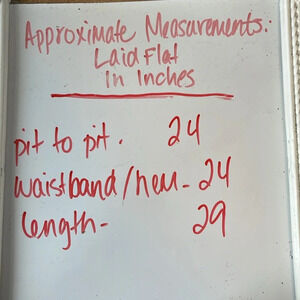 Approximate Measurements:
Laid Flat
In Inches
pit to pit. 24
waistband/hem- 24
length- 29